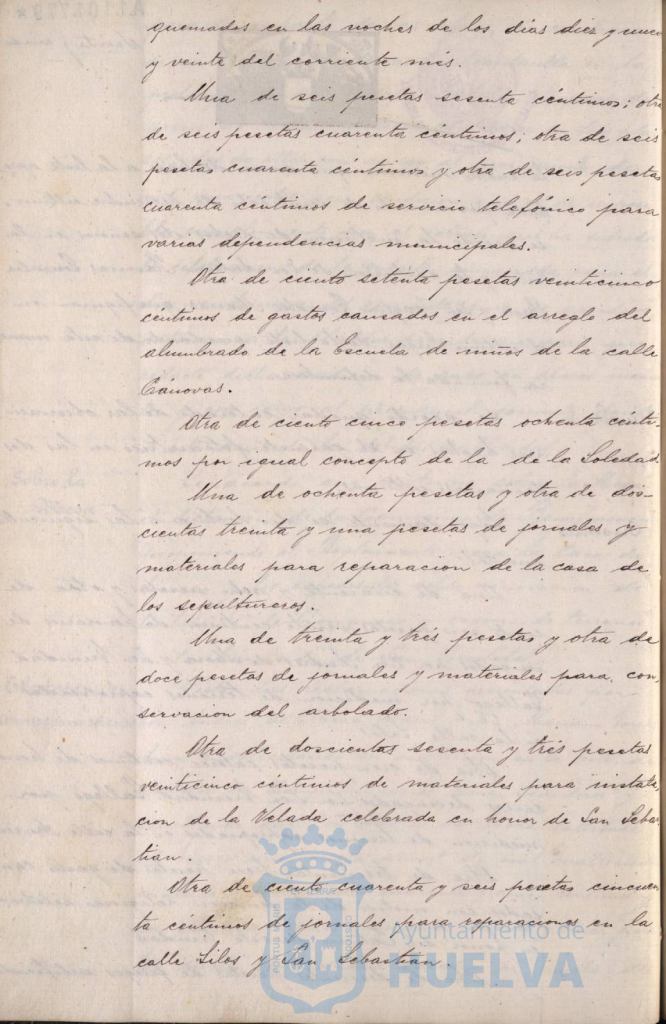 quemados en las noches de los dias diez y nueve
y veinte del corriente més.
Una de seis pesetas sesenta céntimos; otra
de seis pesetas cuarenta céntimos; otra de seis
pesetas cuarenta céntimos y otra de seis pesetas
cuarenta céntimos de servicio telefónico para
varias dependencias municipales.
Otra de ciento setenta pesetas veinticinco
céntimos de gastos causados en el arreglo del
alumbrado de la Escuela de niños de la calle
Cánovas.
Otra de ciento cinco pesetas ochenta cénti-
mos por igual concepto de la de la Soledad.
Una de ochenta pesetas y otra de dos-
cientas treinta y una pesetas de jornales y
materiales para reparacion de la casa de
los sepultureros.
Una de treinta y trés pesetas y otra de
doce pesetas de jornales y materiales para con-
servacion del arbolado.
Otra de doscientas sesenta y trés pesetas
veinticinco céntimos de materiales para instala-
cion de la Velada celebrada en honor de San Sebas-
tian.
Otra de ciento cuarenta y seis pesetas cincuen-
ta céntimos de jornales para reparaciones en la
calle Silos y San Sebastian.
Ayuntamiento de
HUELVA